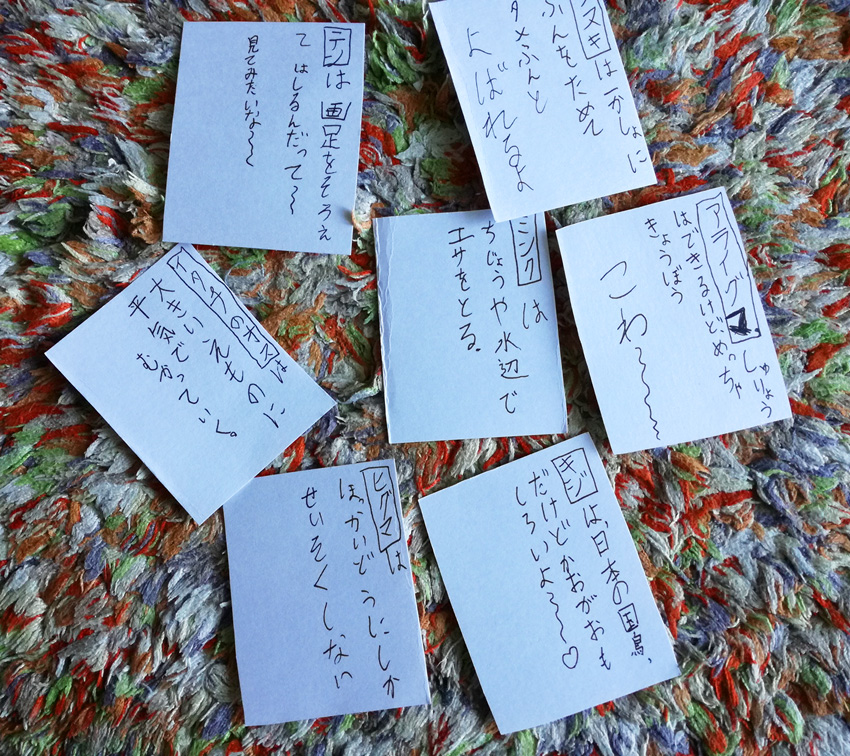 テンは画足をそろえ
てはしるんだって〜
見てみたいな〜〜
ヌキは一かしょに
ふんをためて
タメふんと
よばれるよ
アライグマしゅりょう
はできるけどめっちゃ
きょうぼう
こわ〜〜〜〜
ミンクは
ちじょうや水辺で
エサをとる。
イタチのオスは
大きいえものに
平気で
むかっていく。
キジは、日本の国鳥、
だけどかおがおも
しろいよ〜〜♡
ヒグマは
ほっかいどうにしか
せいそくしない